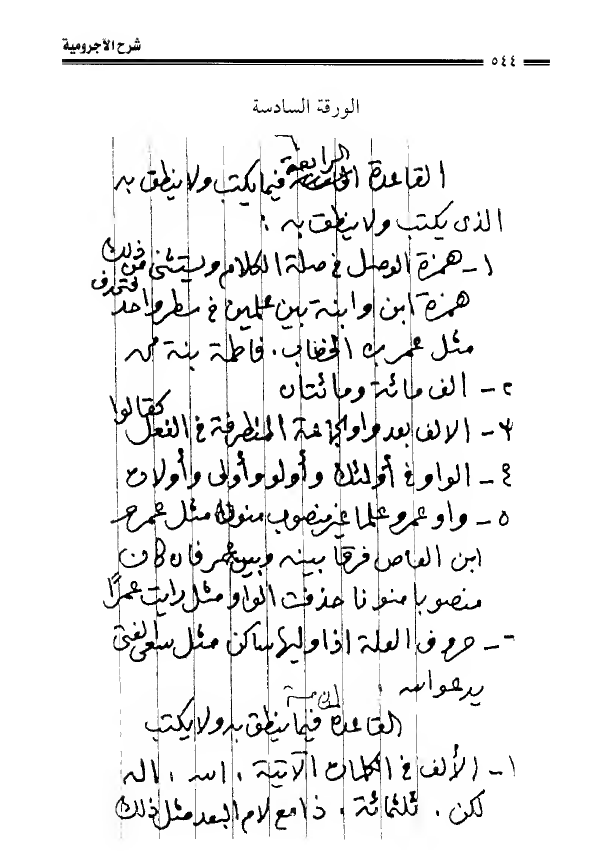 شرح الآجرومية
٥٤٤
الورقة السادسة
القاعدة الرابعة فيما يكتب ولا ينطق به
الذى يكتب ولا ينطق به :
١- همزة الوصل فى صلة الكلام ويستثنى من ذلك
همزة ابن وابنة بين علمين فى سطر واحد فتحذف
مثل عمر بن الخطاب . فاطمة بنة محمد
٢- الف مائة ومائتان
٣- الالف بعد واو الجماعة المتطرفة فى الفعل كقالوا
٤- الواو فى أولئك وأولو وأولى وأولات
٥- واو عمرو علما غير منصوب منون مثل عمرو
ابن العاص فرقا بينه وبين عمر فان كان
منصوبا منونا حذفت الواو مثل رايت عمرًا
٦- حروف العلة اذا وليها ساكن مثل سعى الفتى
يدعو الله .
القاعدة الخامسة فيما ينطق به ولا يكتب
١- الألف فى الكلمات الآتية ، الله ، اله
لكن ، ثلثمائة ، ذا مع لام البعد مثل ذلك